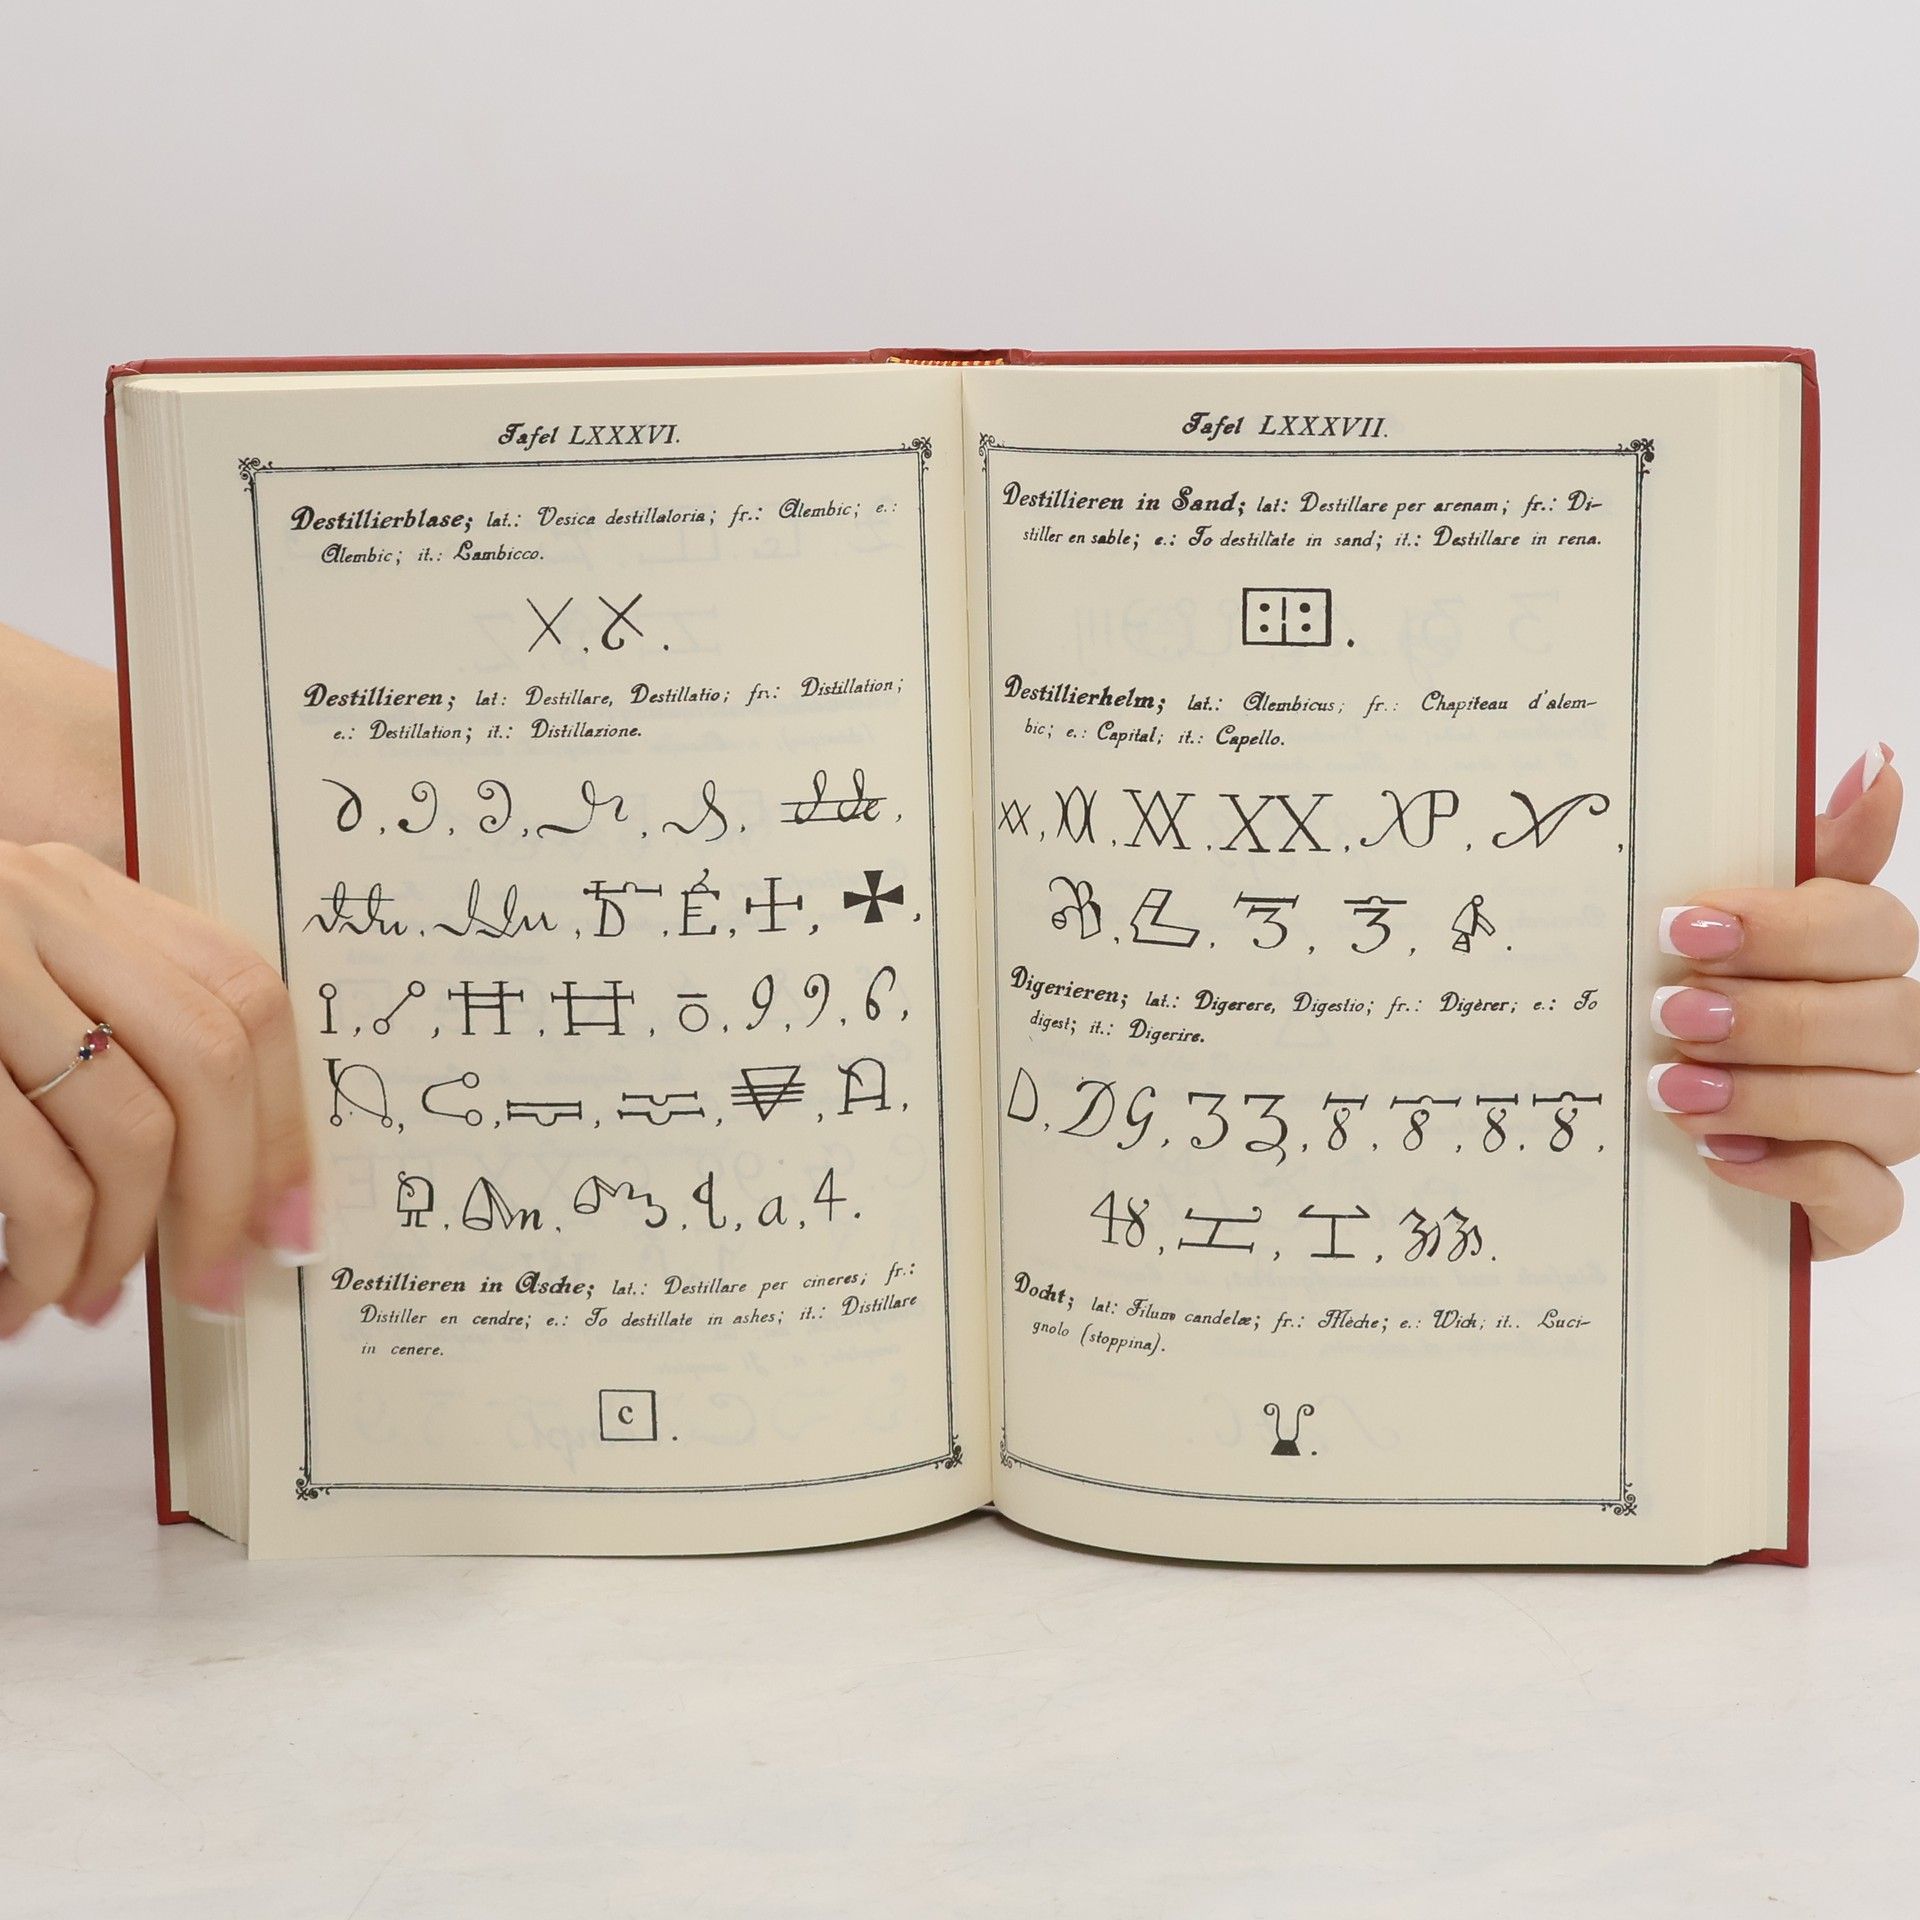 Tafel LXXXVI.
Destillierblase; lat.: Vesica destillatoria; fr.: Alembic; e.:
Alembic; it.: Lambicco.
Destillieren; lat: Destillare, Destillatio; fr.: Distillation;
e.: Destillation; it.: Distillazione.
Destillieren in Asche; lat.: Destillare per cineres; fr.:
Distiller en cendre; e.: To destillate in ashes; it.: Distillare
in cenere.
c
Tafel LXXXVII.
Destillieren in Sand; lat: Destillare per arenam; fr.: Di-
stiller en sable; e.: To destillate in sand; it.: Destillare in rena.
Destillierhelm; lat.: Alembicus; fr.: Chapiteau d'alem-
bic; e.: Capital; it.: Capello.
Digerieren; lat.: Digerere, Digestio; fr.: Digèrer; e.: To
digest; it.: Digerire.
Docht; lat: Filum candelæ; fr.: Mèche; e.: Wick; it.. Luci-
gnolo (stoppina).